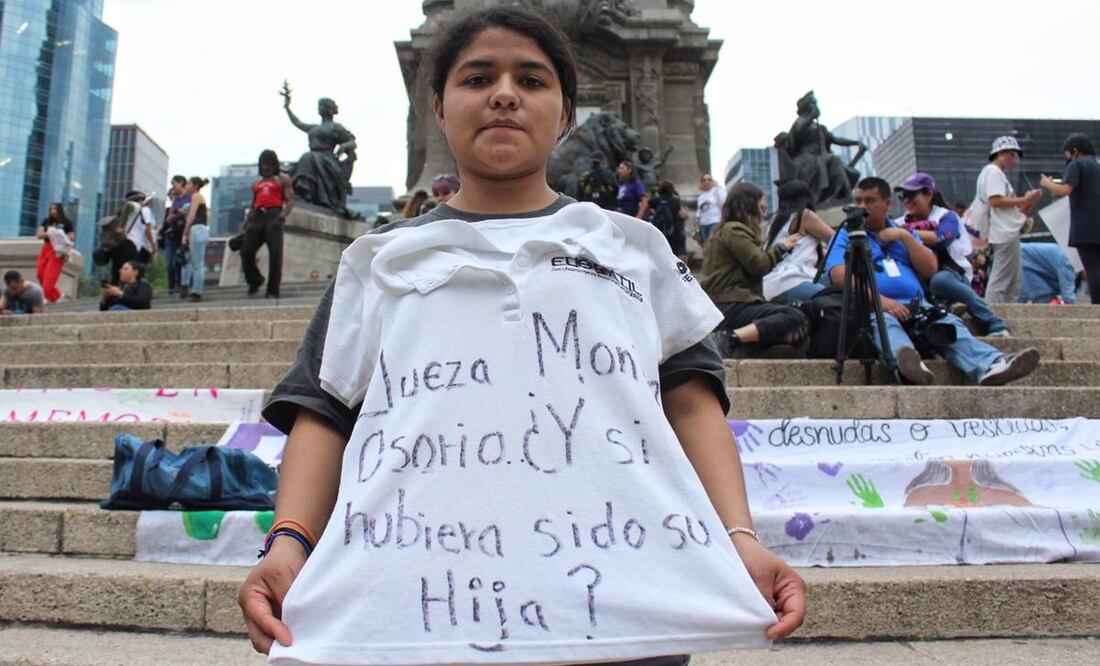 Jueza Moni
Osorio..¿Y si
hubiera sido su
Hija?
EN
MEMOR
desnudas o vestidas,